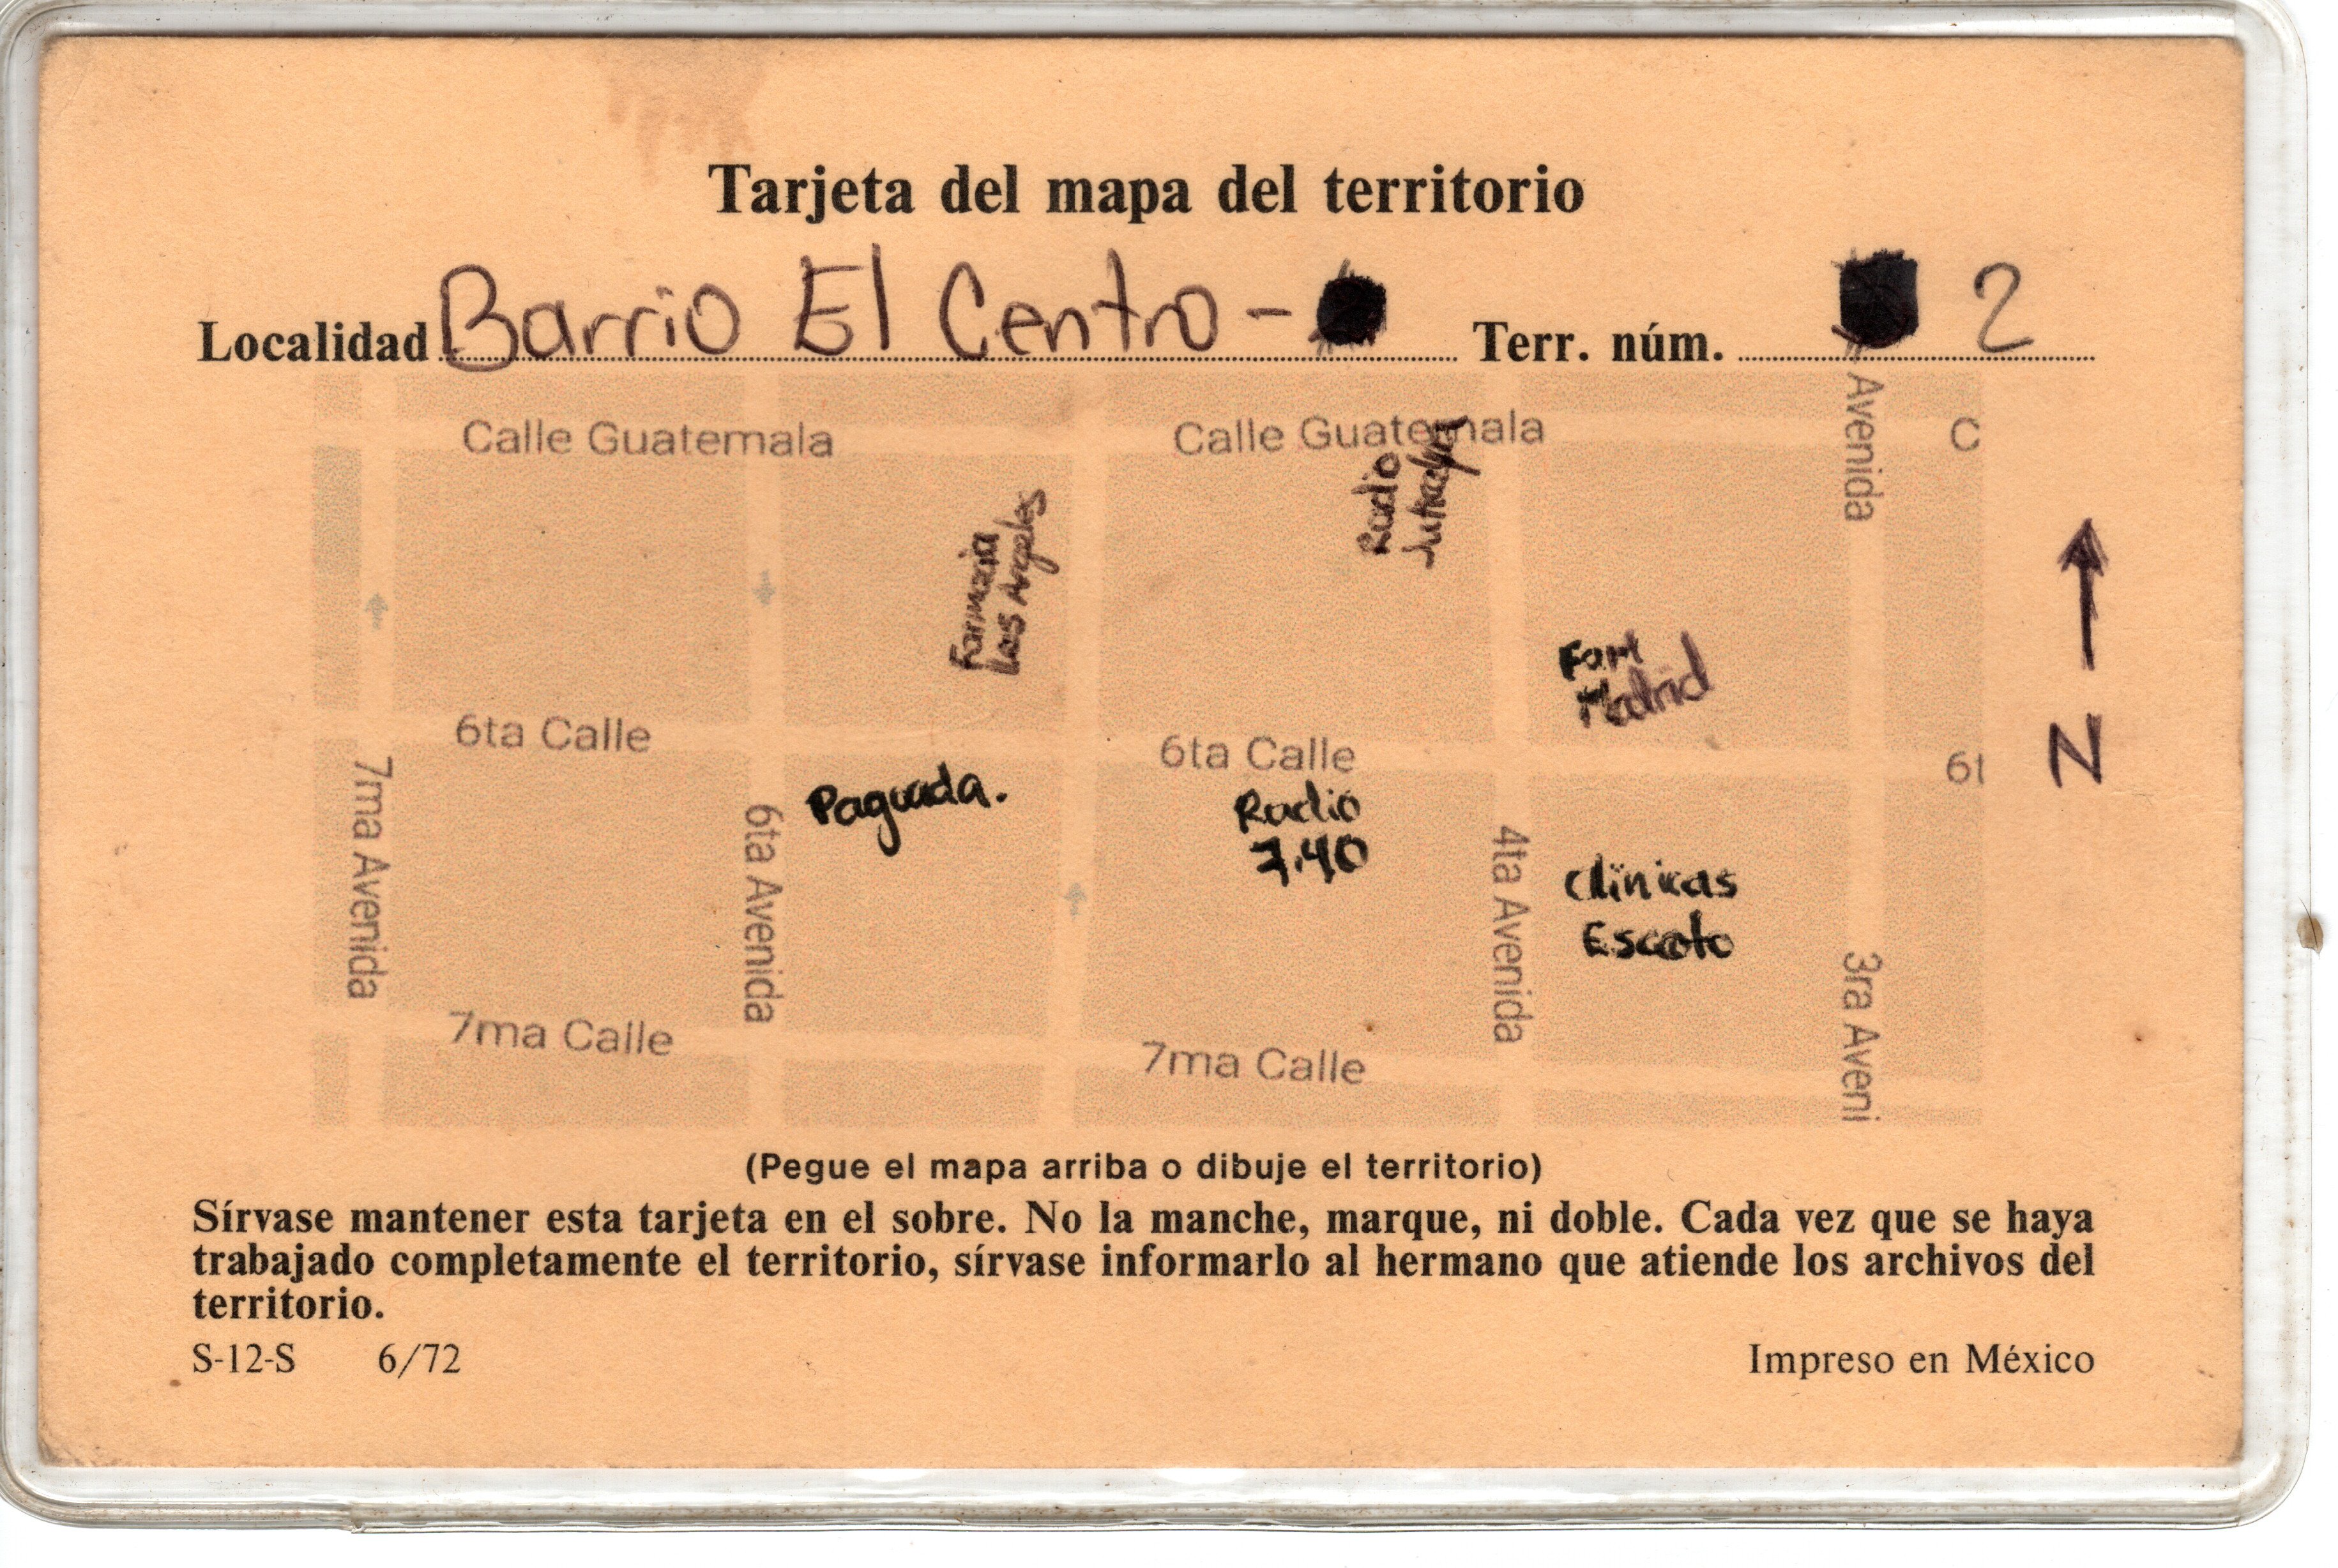 Tarjeta del mapa del territorio
Localidad Barrio El Centro - Terr. núm. 2
Avenida
Calle Guatemala
Calle Guatemala
C
Farmacia
Los Angeles
Radio
Farm
Madrid
N
6ta Calle
6ta Calle
6t
7ma Avenida
6ta Avenida
Paguada.
Radio
7.40
4ta Avenida
Clínicas
Escoto
3ra Aveni
7ma Calle
7ma Calle
(Pegue el mapa arriba o dibuje el territorio)
Sírvase mantener esta tarjeta en el sobre. No la manche, marque, ni doble. Cada vez que se haya
trabajado completamente el territorio, sírvase informarlo al hermano que atiende los archivos del
territorio.
S-12-S 6/72 Impreso en México